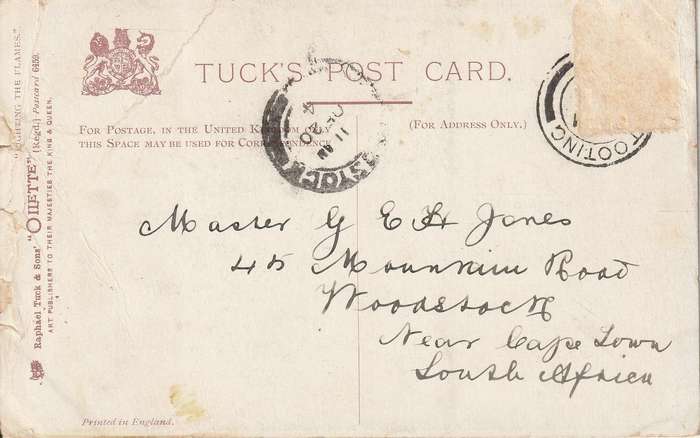 TUCK'S POST CARD.
FOR POSTAGE, IN THE UNITED KINGDOM ONLY
THIS SPACE MAY BE USED FOR CORRESPONDENCE
(FOR ADDRESS ONLY.)
"FIGHTING THE FLAMES."
Raphael Tuck & Sons' "OILETTE" (Regd.) Postcard 6459.
ART PUBLISHERS TO THEIR MAJESTIES THE KING & QUEEN.
11 AM
TOOTING
Master G E H Jones
45 Mountain Road
Woodstock
Near Cape Town
South Africa
Printed in England.